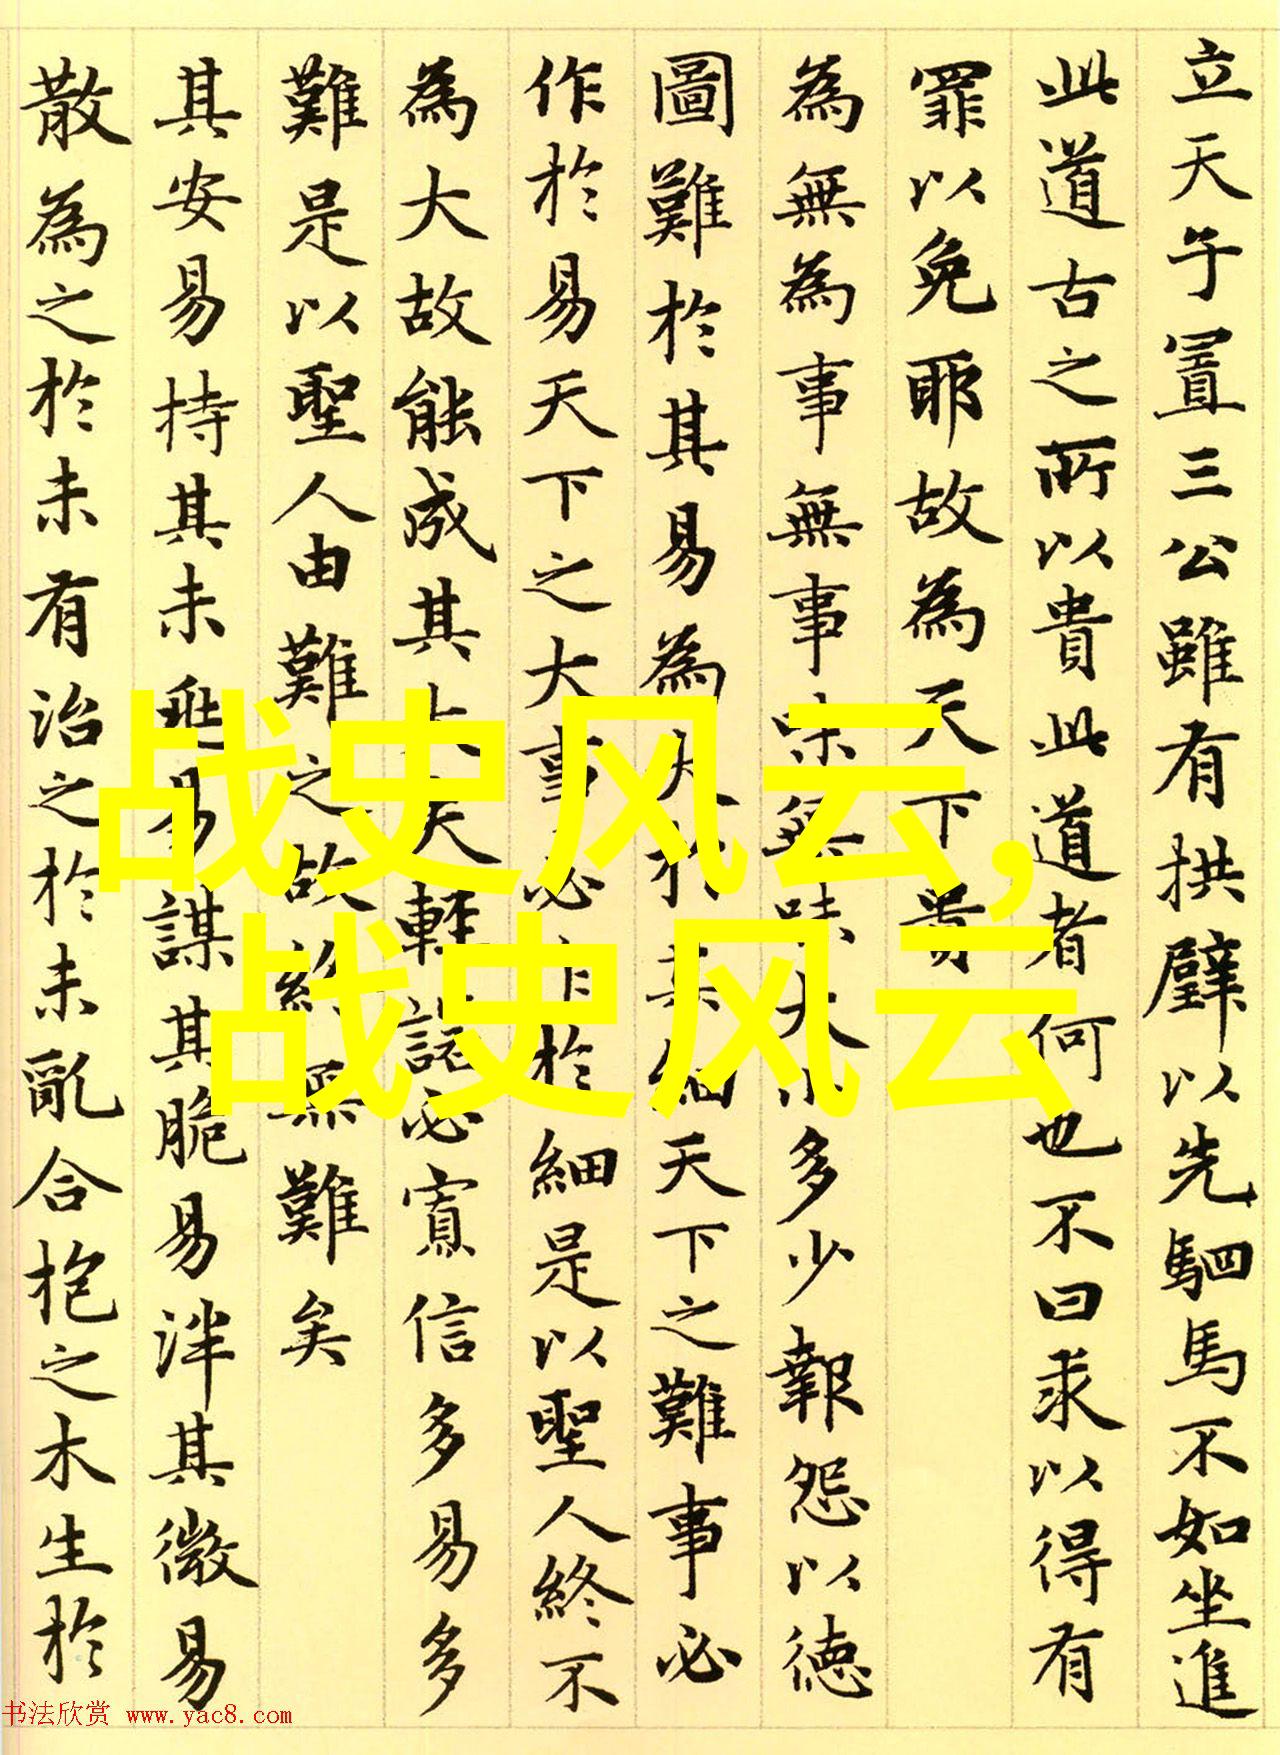 立天子置三公雖有拱璧以先駟馬不如坐進
此道古之所以貴此道者何也不曰求以得有
罪以免耶故為天下貴
為無為事無事味無味大小多少報怨以德
圖難於其易為大於其細天下之難事必
作於易天下之大事必作於細是以聖人終不
為大故能成其大夫輕諾必寡信多易多
難是以聖人由難之故終無難矣
其安易持其未兆易謀其脆易泮其微易
散為之於未有治之於未亂合抱之木生於
战史风云，
战史风云
书法欣赏 www.yac8.com